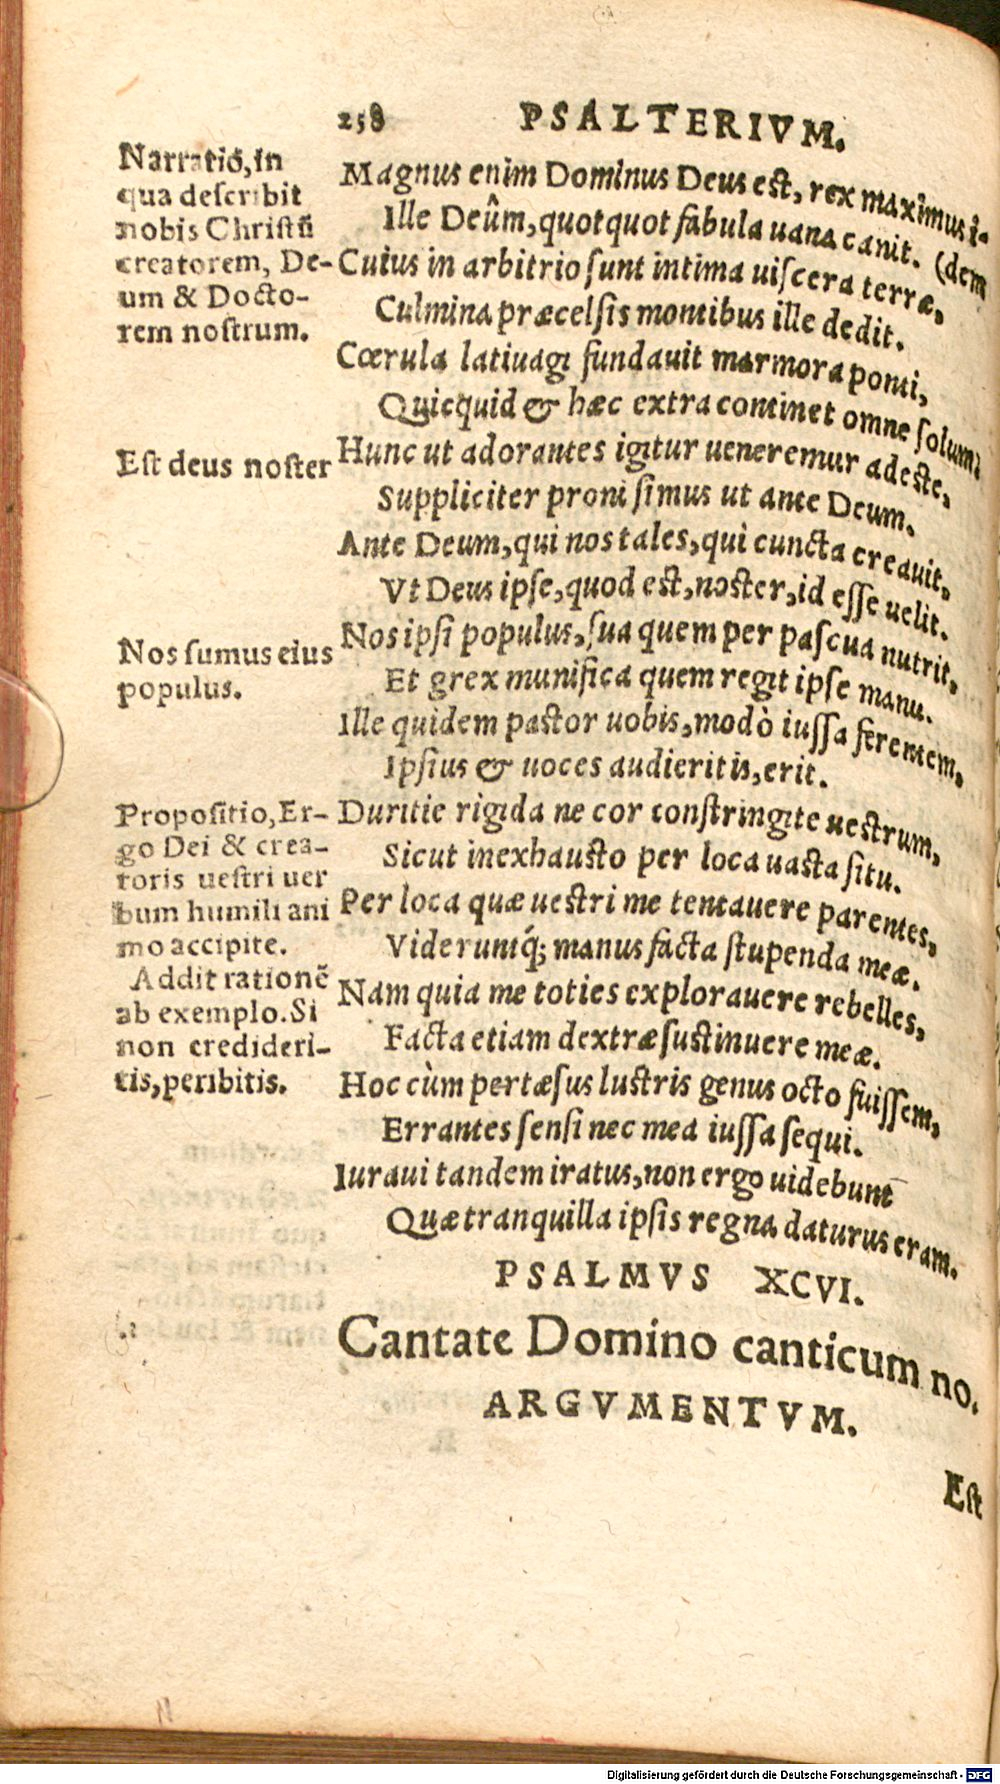 258 PSALTERIVM.
Narratio, in
qua describit
nobis Christũ
creatorem, De-
um & Docto-
rem nostrum.
Est deus noster
Nos sumus eius
populus.
Propositio, Er-
go Dei & crea-
toris uestri uer
bum humili ani
mo accipite.
Addit rationẽ
ab exemplo. Si
non credideri-
tis, peribitis.
Magnus enim Dominus Deus est, rex maximus i-
Ille Deûm, quotquot fabula uana canit. (dem
Cuius in arbitrio sunt intima uiscera terræ,
Culmina præcelsis montibus ille dedit.
Cœrula latiuagi fundauit marmora ponti,
Quicquid & hæc extra continet omne solum:
Hunc ut adorantes igitur ueneremur adeste,
Suppliciter proni simus ut ante Deum.
Ante Deum, qui nos tales, qui cuncta creauit,
Vt Deus ipse, quod est, noster, id esse uelit.
Nos ipsi populus, sua quem per pascua nutrit,
Et grex munifica quem regit ipse manu.
Ille quidem pastor uobis, modò iussa ferentem,
Ipsius & uoces audieritis, erit.
Duritie rigida ne cor constringite uestrum,
Sicut inexhausto per loca uasta situ.
Per loca quæ uestri me tentauere parentes,
Videruntq́; manus facta stupenda meæ.
Nam quia me toties explorauere rebelles,
Facta etiam dextræ sustinuere meæ.
Hoc cùm pertæsus lustris genus octo fuissem,
Errantes sensi nec mea iussa sequi.
Iuraui tandem iratus, non ergo uidebunt
Quæ tranquilla ipsis regna daturus eram.
PSALMVS XCVI.
Cantate Domino canticum no.
ARGVMENTVM.
Est
Digitalisierung gefördert durch die Deutsche Forschungsgemeinschaft - DFG